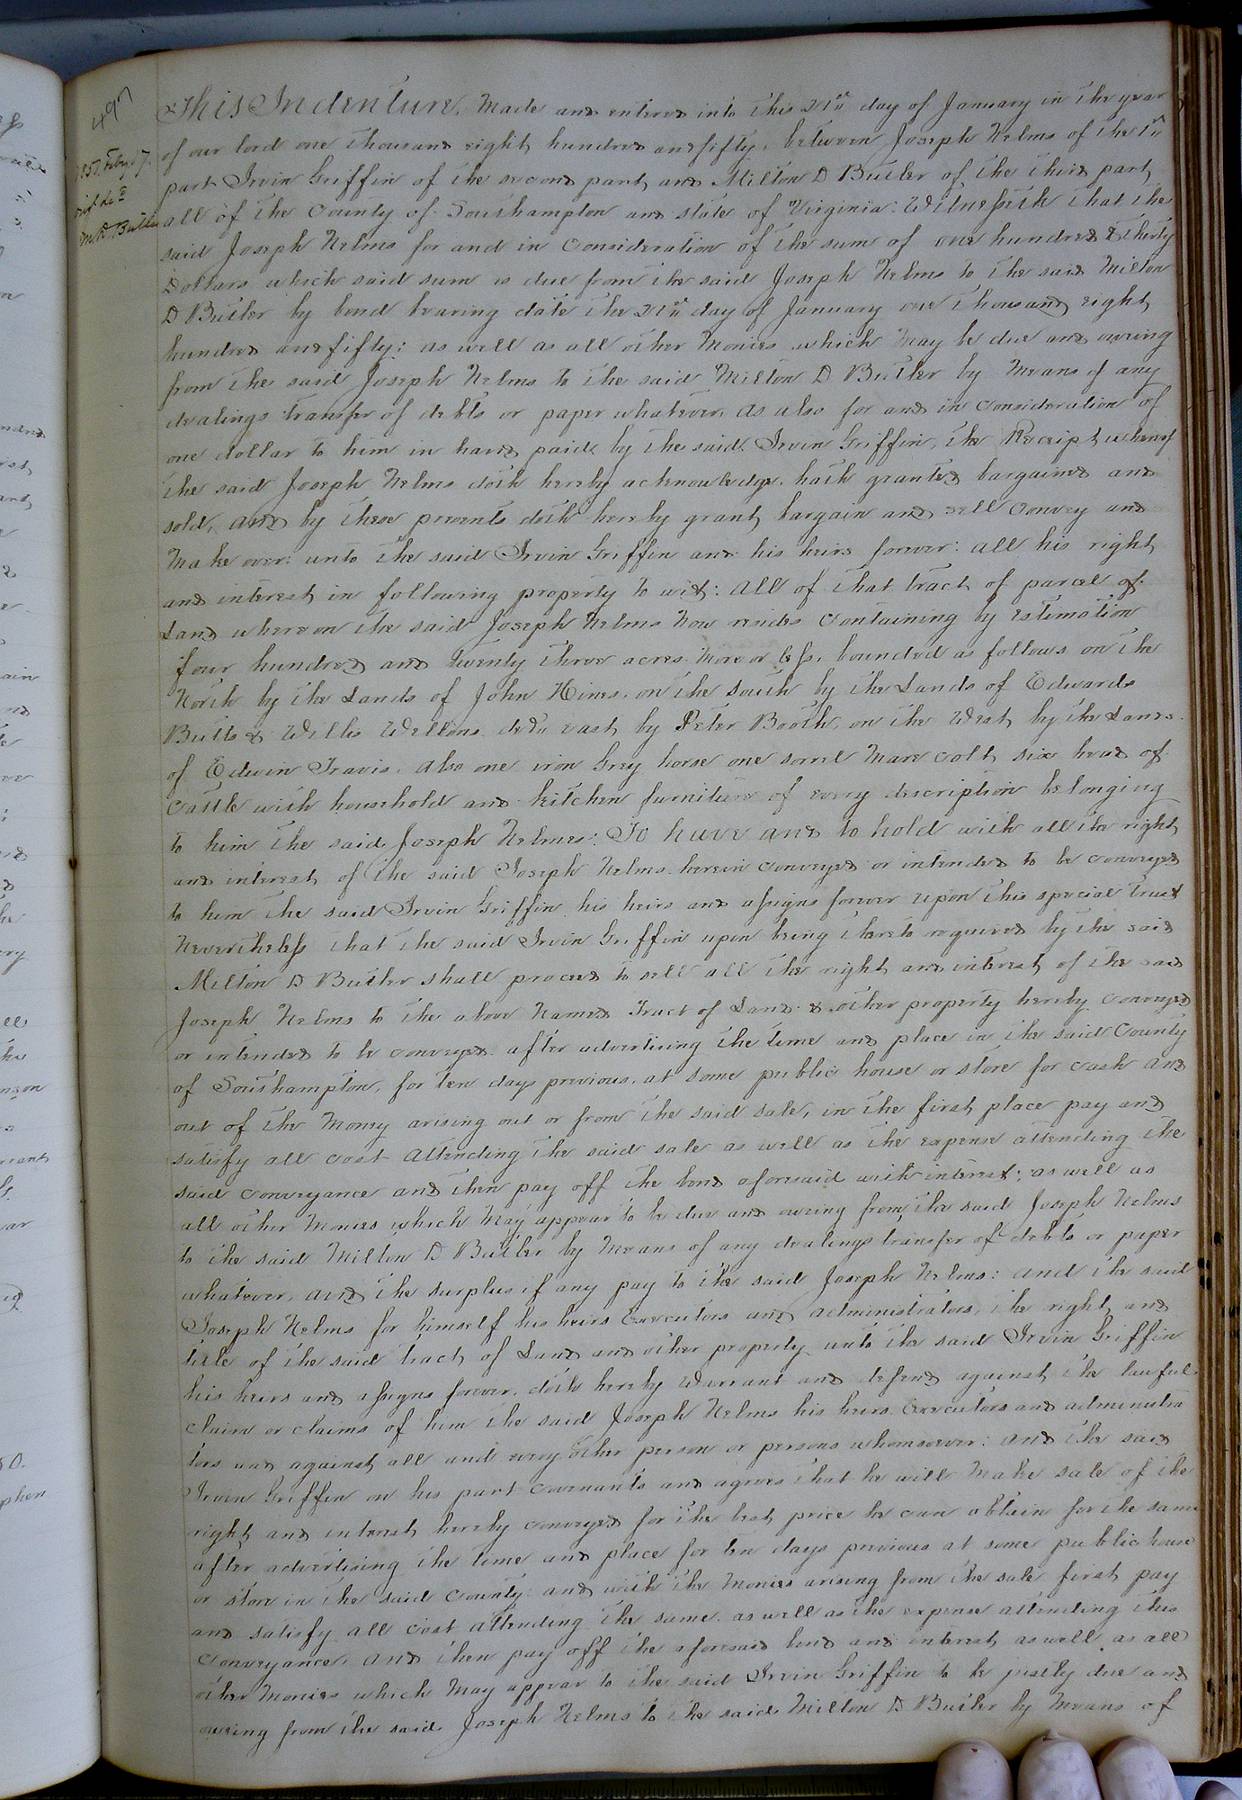 497
This Indenture, Made and entered into this 21st day of January in the year
1850. Feby 17.
of our lord one thousand eight hundred and fifty, between Joseph Nelms of the 1st
part Irvin Griffin of the second part, and Milton D Butler of the third part,
M.D. Butler
all of the County of Southampton and state of Virginia: Witnesseth that the
said Joseph Nelms for and in Consideration of the sum of one hundred & thirty
Dollars which said sum is due from the said Joseph Nelms to the said Milton
D Butler by bond bearing date the 21st day of January one thousand eight
hundred and fifty: as well as all other Monies which May be due and owing
from the said Joseph Nelms to the said Milton D Butler by Means of any
dealings transfer of debts or paper whatever, as also for and in Consideration of
one dollar to him in hand paid, by the said Irvin Griffin, the Receipt whereof
the said Joseph Nelms doth hereby acknowledge. hath granted bargained and
sold, and by these presents doth hereby grant, bargain and sell Convey and
Make over: unto the said Irvin Griffin and his heirs forever: all his right
and interest in following property to wit: All of that tract of parcel of
Land whereon the said Joseph Nelms Now resides Containing by Estimation
four hundred and twenty three acres More or less, bounded as follows on the
North by the Lands of John Hines, on the South by the Lands of Edwards
Butts & Willis Wellons decd. east by Peter Booth, on the West, by the Lands
of Edwin Travis. Also one iron Grey horse one sorrel Mare Colt, six head of
Cattle with household and kitchen furniture of every description belonging
to him the said Joseph Nelms: To have and to hold with all the right
and interest of the said Joseph Nelms herein Conveyed or intended to be Conveyed
to him the said Irvin Griffin his heirs and assigns forever upon this special trust
Nevertheless that the said Irvin Griffin upon being thereto required by the said
Milton D Butler shall proceed to sell all the right and interest of the said
Joseph Nelms to the above Named Tract of Land & other property hereby Conveyed
or intended to be Conveyed. after advertising the time and place in the said County
of Southampton, for ten days previous, at some public house or store for cash and
out of the Money arising out or from the said sale, in the first place pay and
satisfy all cost Attending the said sale as well as the expense attending the
said Conveyance and then pay off the bond aforesaid with interest; as well as
all other Monies which May appear to be due and owing from the said Joseph Nelms
to the said Milton D Butler by Means of any dealings transfer of debts or paper
whatever, and the surplus if any pay to the said Joseph Nelms: and the said
Joseph Nelms for himself his heirs Executors and administrators, the right and
title of the said tract of Land and other property unto the said Irvin Griffin
his heirs and assigns forever, doth hereby Warrant and defend against the lawful
Claim or claims of him the said Joseph Nelms his heirs Executors and administra
tors and against all and every other person or persons whomsoever: and the said
Irvin Griffin on his part Covenants and agrees that he will Make sale of the
right, and interest hereby Conveyed for the best price he can obtain for the same
after advertising the time and place for ten days previous at some public house
or store in the said County: and with the Monies arising from the sale first pay
and satisfy all cost attending the same, as well as the expense attending this
Conveyance, and then pay off the aforesaid bond and interest as well as all
other Monies which May appear to the said Irvin Griffin to be justly due and
owing from the said Joseph Nelms to the said Milton D Butler by Means of